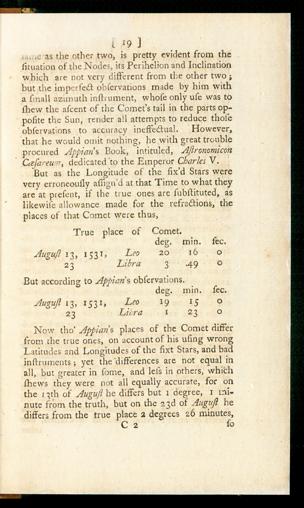 [ 19 ]
same as the other two, is pretty evident from the
situation of the Nodes, its Perihelion and Inclination
which are not very different from the other two;
but the imperfect observations made by him with
a small azimuth instrument, whose only use was to
shew the ascent of the Comet's tail in the parts op-
posite the Sun, render all attempts to reduce those
observations to accuracy ineffectual. However,
that he would omit nothing, he with great trouble
procured Appian's Book, intituled, Astronomicon
Cæsareum, dedicated to the Emperor Charles V.
But as the Longitude of the fix'd Stars were
very erroneously assign'd at that Time to what they
are at present, if the true ones are substituted, as
likewise allowance made for the refractions, the
places of that Comet were thus,
True place of Comet.
deg. min. sec.
August 13, 1531, Leo 20 16 0
23 Libra 3 49 0
But according to Appian's observations.
deg. min. sec.
August 13, 1531, Leo 19 15 0
23 Libra 1 23 0
Now tho' Appian's places of the Comet differ
from the true ones, on account of his using wrong
Latitudes and Longitudes of the fixt Stars, and bad
instruments; yet the differences are not equal in
all, but greater in some, and less in others, which
shews they were not all equally accurate, for on
the 13th of August he differs but 1 degree, 1 mi-
nute from the truth, but on the 23d of August he
differs from the true place 2 degrees 26 minutes,
C 2 so